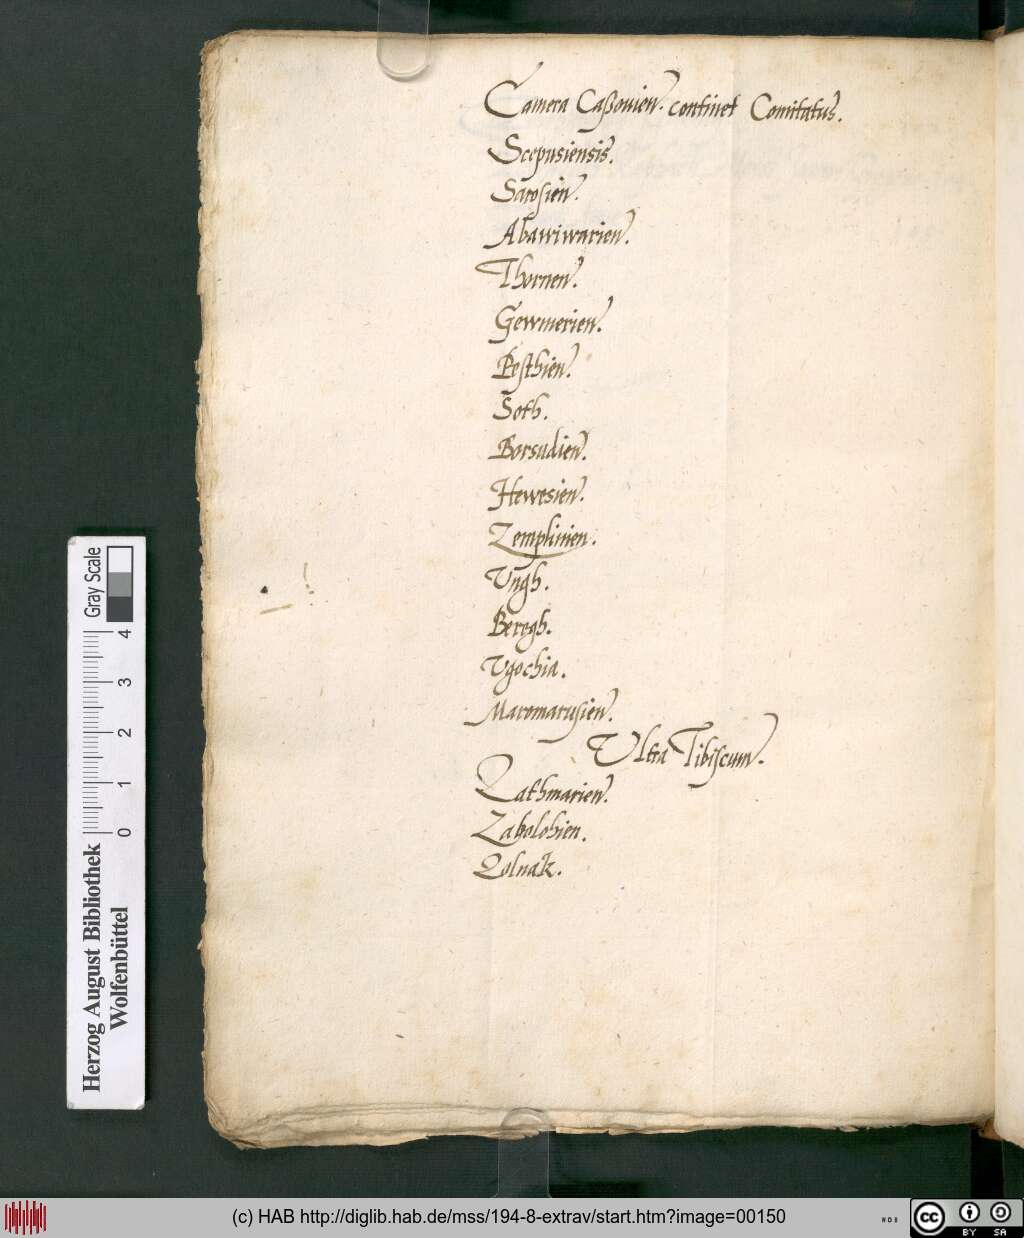 Camera Caßouien. continet Comitatus.
Scepusiensis.
Sarosien.
Abawiwarien.
Thornen.
Gewmerien.
Pesthien.
Soth.
Borsudien.
Hewesien.
Zemplinien.
Vngh.
Beregh.
Vgochia.
Maromarusien.
Vltra Tibiscum.
Zathmarien.
Zabolchien.
Zolnak.
Gray Scale
4
3
2
1
0
Herzog August Bibliothek
Wolfenbüttel
(c) HAB http://diglib.hab.de/mss/194-8-extrav/start.htm?image=00150
WDB
cc
BY SA